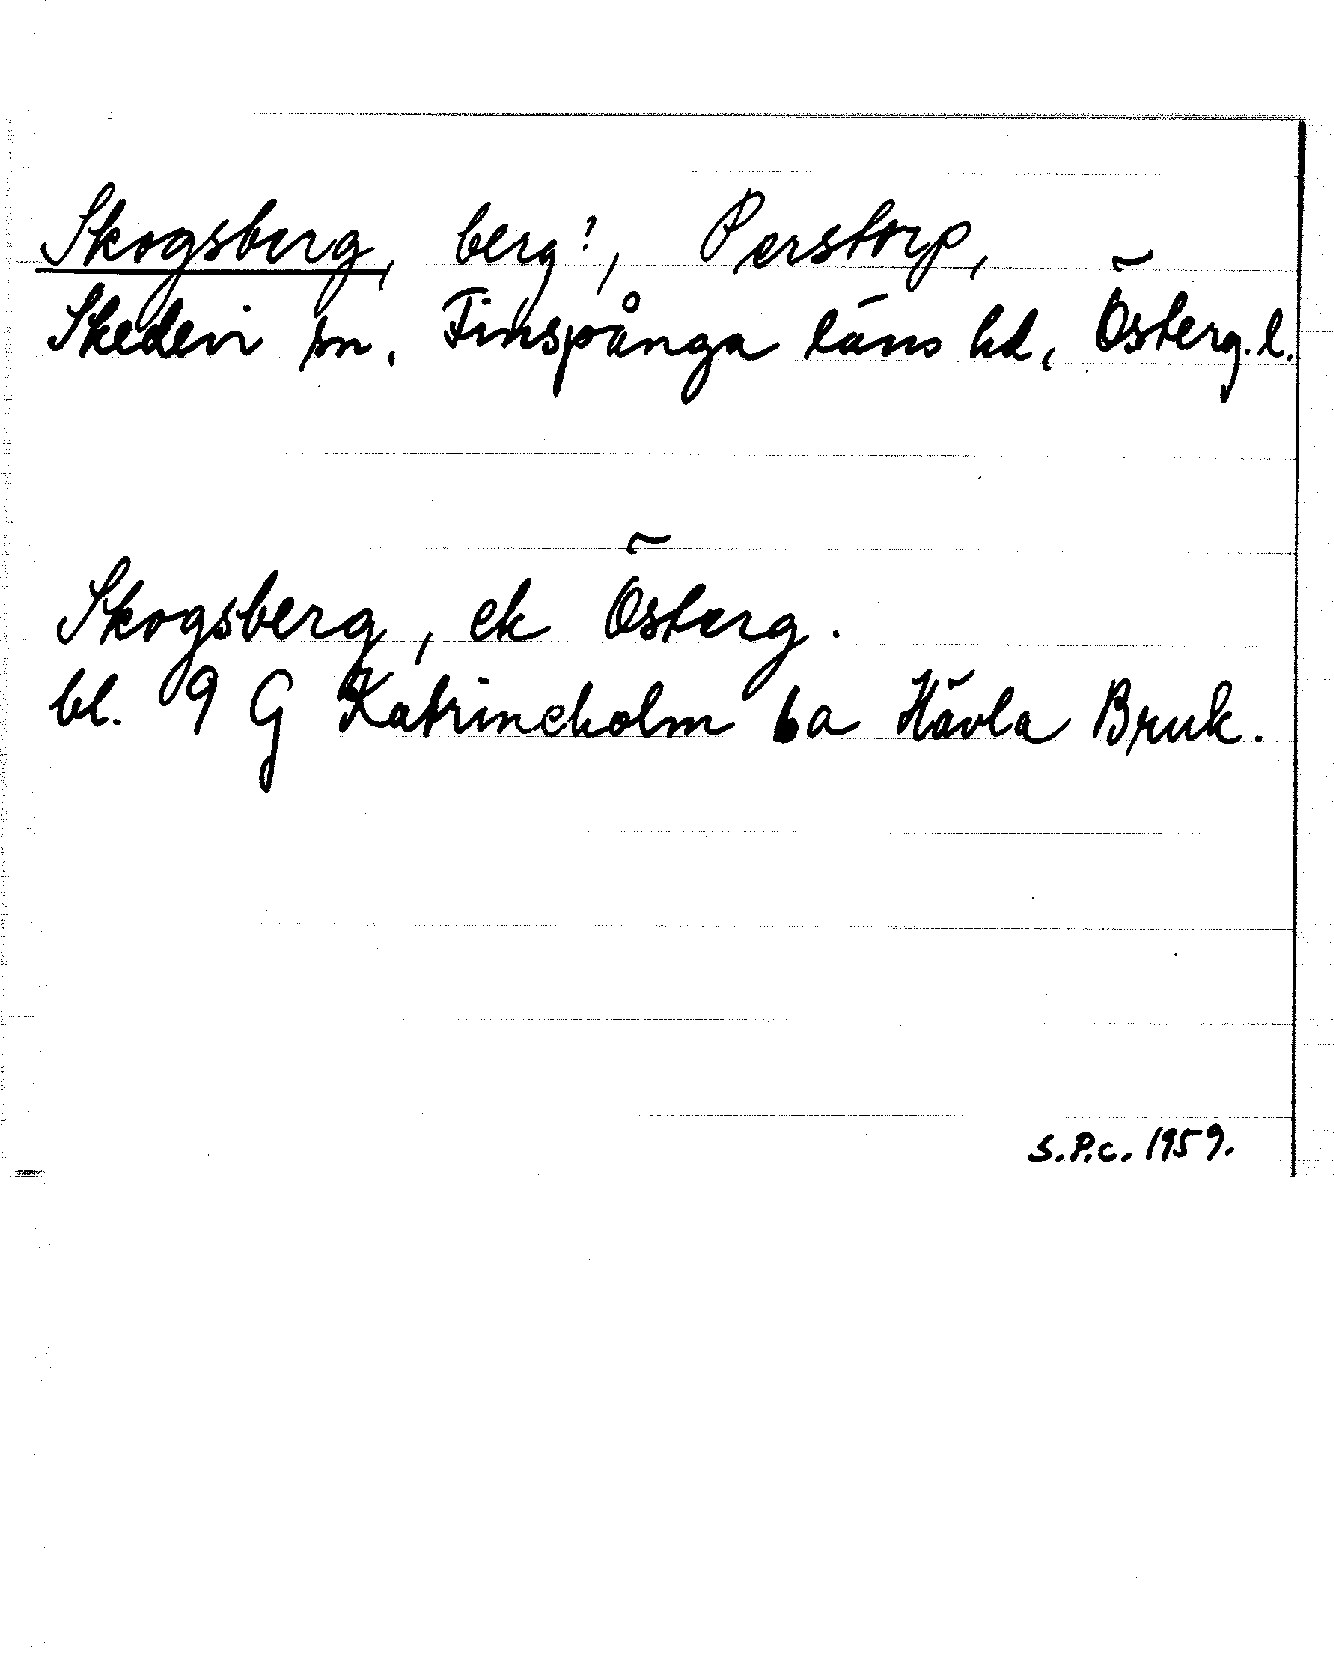 Skogsberg, berg?, Perstorp,
Skedevi sn, Finspånga läns hd, Österg. l.
Skogsberg, ek Österg.
bl. 9 G Katrineholm 6a Hävla Bruk.
S.P.C. 1959.